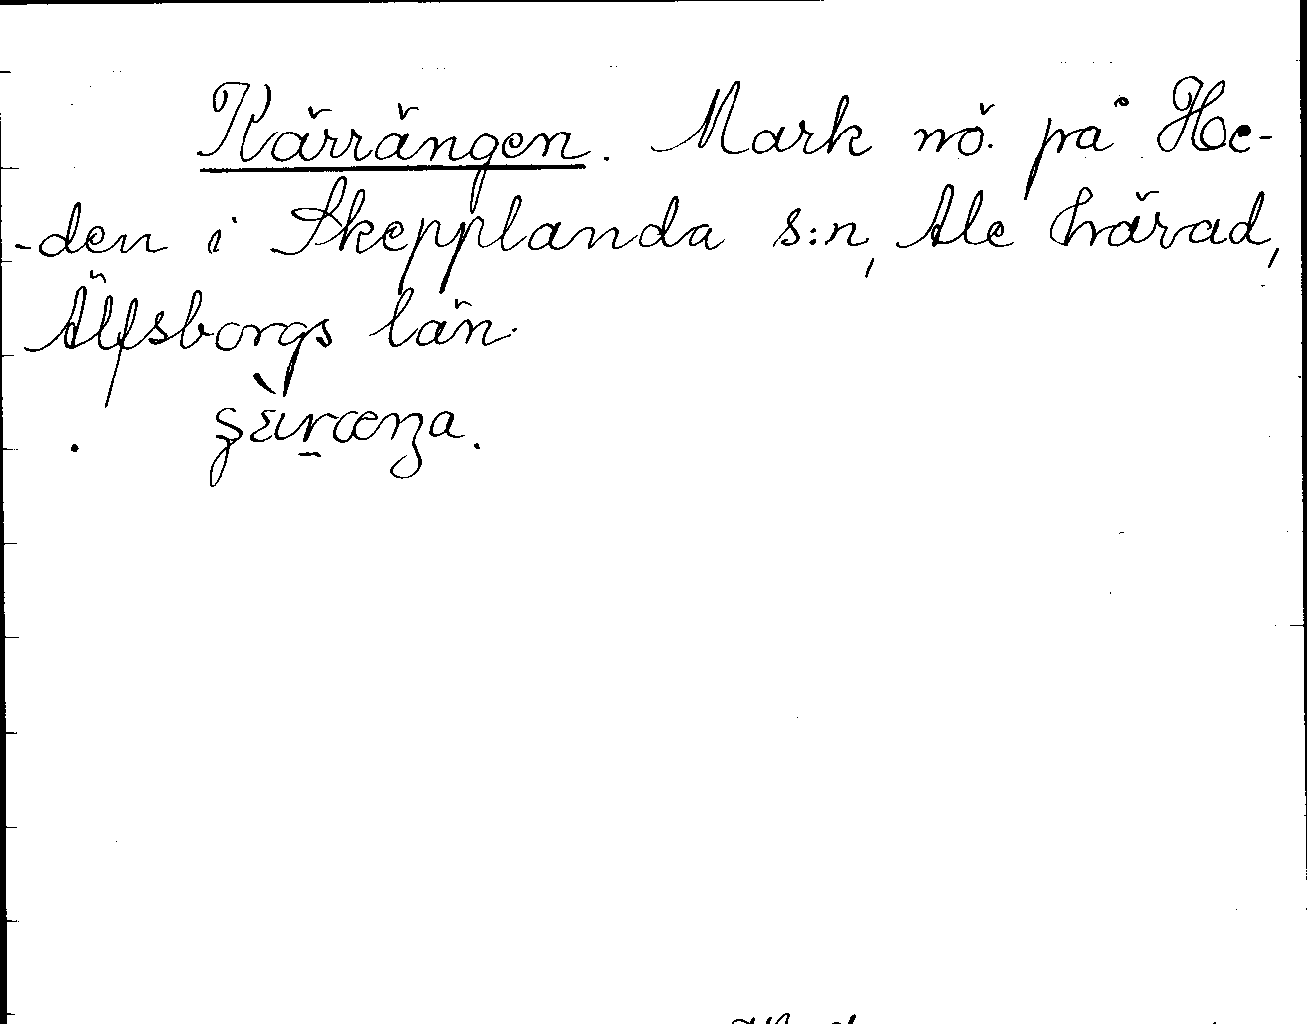 Kärrängen. Mark nö. på He-
-den i Skepplanda s:n, Ale härad,
Älfsborgs län.